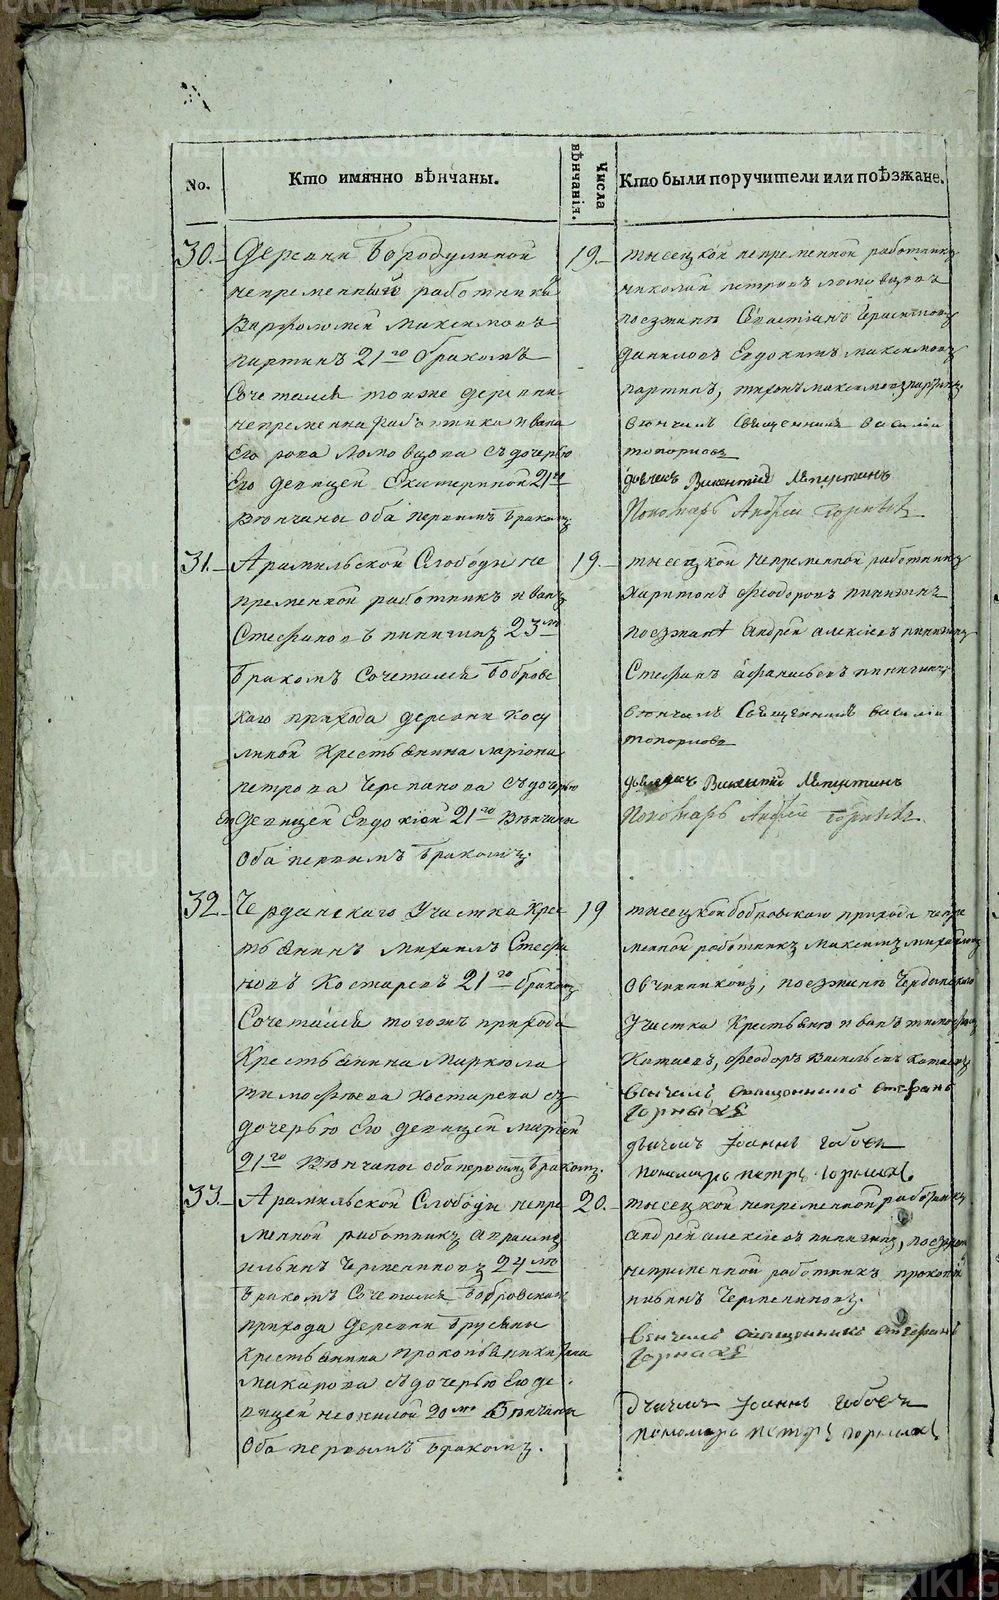 No.
Кто имянно вѣнчаны.
Числа вѣнчанія.
Кто были поручители или поѣзжане.
30.
Деревни Бородулиной
непременный работникъ
Варфоломей Максимовъ
партинъ 21го бракомъ
Сочетался тоиже деревни
непременна работника ивана
Егорова ломовцова съ дочерью
Его девицей Екатериной 21го
Венчаны оба первымъ бракомъ
19.
тысецкой непременной работникъ
николай петровъ ломовцовъ
поезжане Севастіанъ Герасимовъ
даниловъ Евдокимъ максимовъ
партинъ, тихонъ максимовъ партинъ
венчалъ Священникъ василій
топорковъ
дьячокъ Викентій Лепустинъ
Пономарь Андрей Горныхъ
31.
Арамильской Слободы не
пременной работникъ иванъ
Стефановъ пинигинъ 23мъ
бракомъ Сочетался бобровс
каго прихода деревни косу
линой Крестьянина ларіона
петрова Черепанова съ дочерью
Ево Девицей Евдокіей 21го Венчаны
Оба первымъ бракомъ.
19.
тысецкой непременной работникъ
харитонъ феодоровъ пинигинъ
поезжане андрей алексіевъ пинигинъ
Стефанъ афанасьевъ пинигинъ
венчалъ Священникъ василій
топорковъ
дьячокъ Викентій Лепустинъ
Пономарь Андрей Горныхъ
32.
Черданскаго Участка Крес
тьянинъ михаилъ Стефа
новъ Костаревъ 21го бракомъ
Сочетался тогожъ прихода
Крестьянина Маркела
тимофеева костарева съ
дочерью Его девицей маріей
21го Венчаны оба первымъ бракомъ.
19
тысецкой бобровскаго прихода непре
менной работникъ максимъ михайловъ
Овчинниковъ, поезжане Чердынскаго
Участка Крестьяне иванъ тимофеевъ
Катаевъ, феодоръ Васильевъ Катаевъ
Венчалъ священникъ Стефанъ
Горныхъ
дьячокъ Іоаннъ Бабинъ
пономарь петръ горныхъ
33.
Арамильской Слободы непре
менной работникъ
ильинъ Черпениновъ 24мъ
бракомъ Сочетался бобровскаго
прихода Деревни Брусяны
Крестьянина Прокопья никифорова
макарова съ дочерью Ево де
вицей неонилой 20мъ Венчаны
Оба первымъ бракомъ.
20.
тысецкой непременной работникъ
андрей алексіевъ пинигинъ, поезжане
непременной работникъ прокопій
ивинъ Черпениновъ.
Венчалъ священникъ Стефанъ
Горныхъ
Дьячокъ Іоаннъ
пономарь петръ горныхъ
METRIKI.GASO-URAL.RU